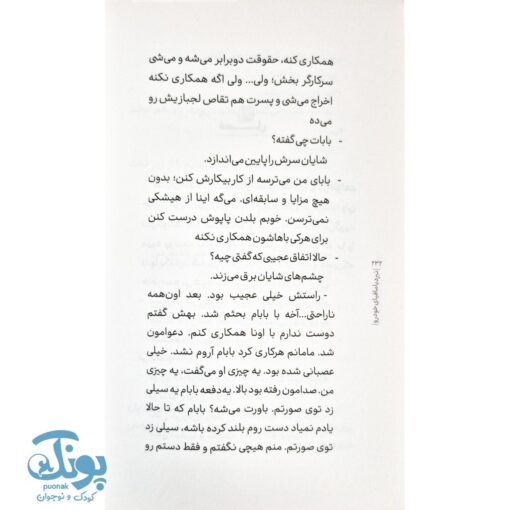 همکاری کنه، حقوقت دوبرابر می‌شه و می‌شی
سرکارگر بخش؛ ولی... ولی اگه همکاری نکنه
اخراج می‌شی و پسرت هم تقاص لجبازیش رو
می‌ده
- بابات چی گفته؟
شایان سرش را پایین می‌اندازد.
- بابای من می‌ترسه از کار بیکارش کنن؛ بدون
هیچ مزایا و سابقه‌ای. می‌گه اینا از هیشکی
نمی‌ترسن. خوبم بلدن پاپوش درست کنن
برای هرکی باهاشون همکاری نکنه
- حالا اتفاق عجیبی که گفتی چیه؟
چشم‌های شایان برق می‌زند.
- راستش خیلی عجیب بود. بعد اون‌همه
ناراحتی...آخه با بابام بحثم شد. بهش گفتم
دوست ندارم با اونا همکاری کنم. دعوامون
شد. مامانم هرکاری کرد بابام آروم نشد. خیلی
عصبانی شده بود. یه چیزی او می‌گفت، یه چیزی
من. صدامون رفته بود بالا. یه‌دفعه بابام یه سیلی
زد توی صورتم. باورت می‌شه؟ بابام که تا حالا
یادم نمیاد دست روم بلند کرده باشه، سیلی زد
توی صورتم. منم هیچی نگفتم و فقط دستم رو
نبرد با مافیای خودرو
پونک
puonak
کودک و نوجوان